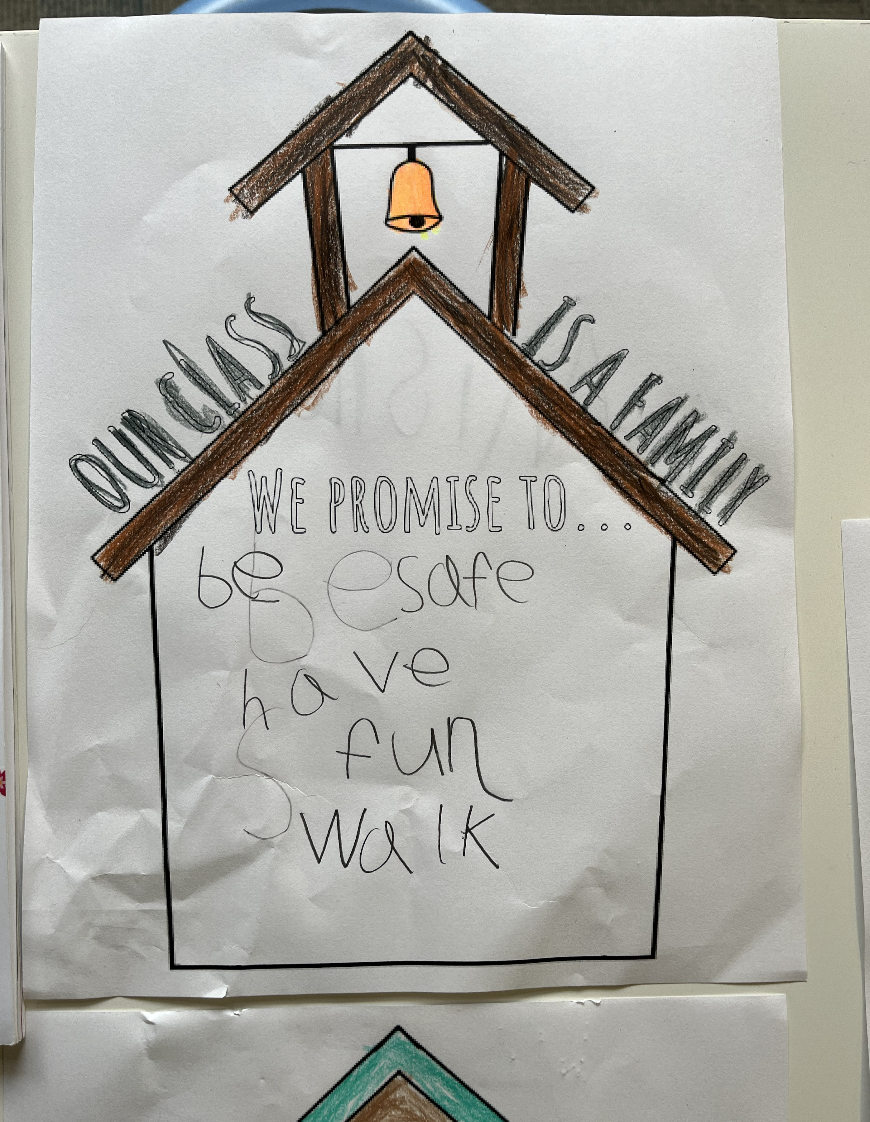 OUR CLASS IS A FAMILY
WE PROMISE TO...
be safe
have
fun
walk